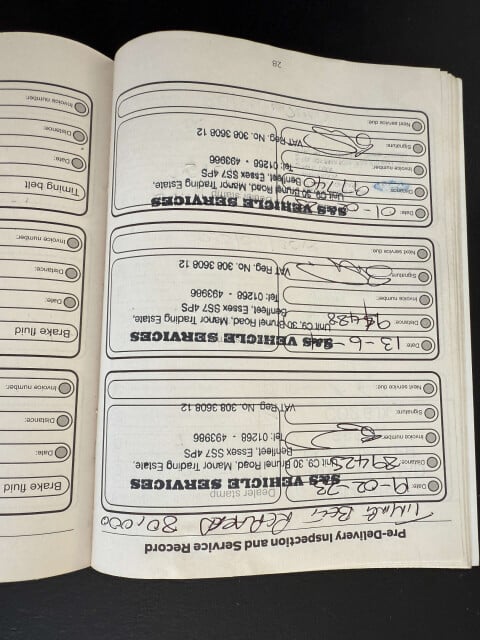 Pre-Delivery Inspection and Service Record
TIMING BELT REPLACED 80,000
Dealer stamp
Date: 9-02-22
Distance: 89425
Invoice number:
Signature:
Next service due:
S&S VEHICLE SERVICES
Unit C9, 30 Brunel Road, Manor Trading Estate.
Benfleet, Essex SS7 4PS
Tel: 01268 - 493986
VAT Reg. No. 308 3608 12
Date: 13-6-
Distance:
Invoice number:
Signature:
Next service due:
S&S VEHICLE SERVICES
Unit C9, 30 Brunel Road, Manor Trading Estate.
Benfleet, Essex SS7 4PS
Tel: 01268 - 493986
VAT Reg. No. 308 3608 12
Date: 01-
Distance: 97740
Invoice number:
Signature:
Next service due:
S&S VEHICLE SERVICES
Unit C9, 30 Brunel Road, Manor Trading Estate.
Benfleet, Essex SS7 4PS
Tel: 01268 - 493986
VAT Reg. No. 308 3608 12
28
Brake fluid
Date:
Distance:
Invoice number:
Brake fluid
Date:
Distance:
Invoice number:
Timing belt
Date:
Distance:
Invoice number: